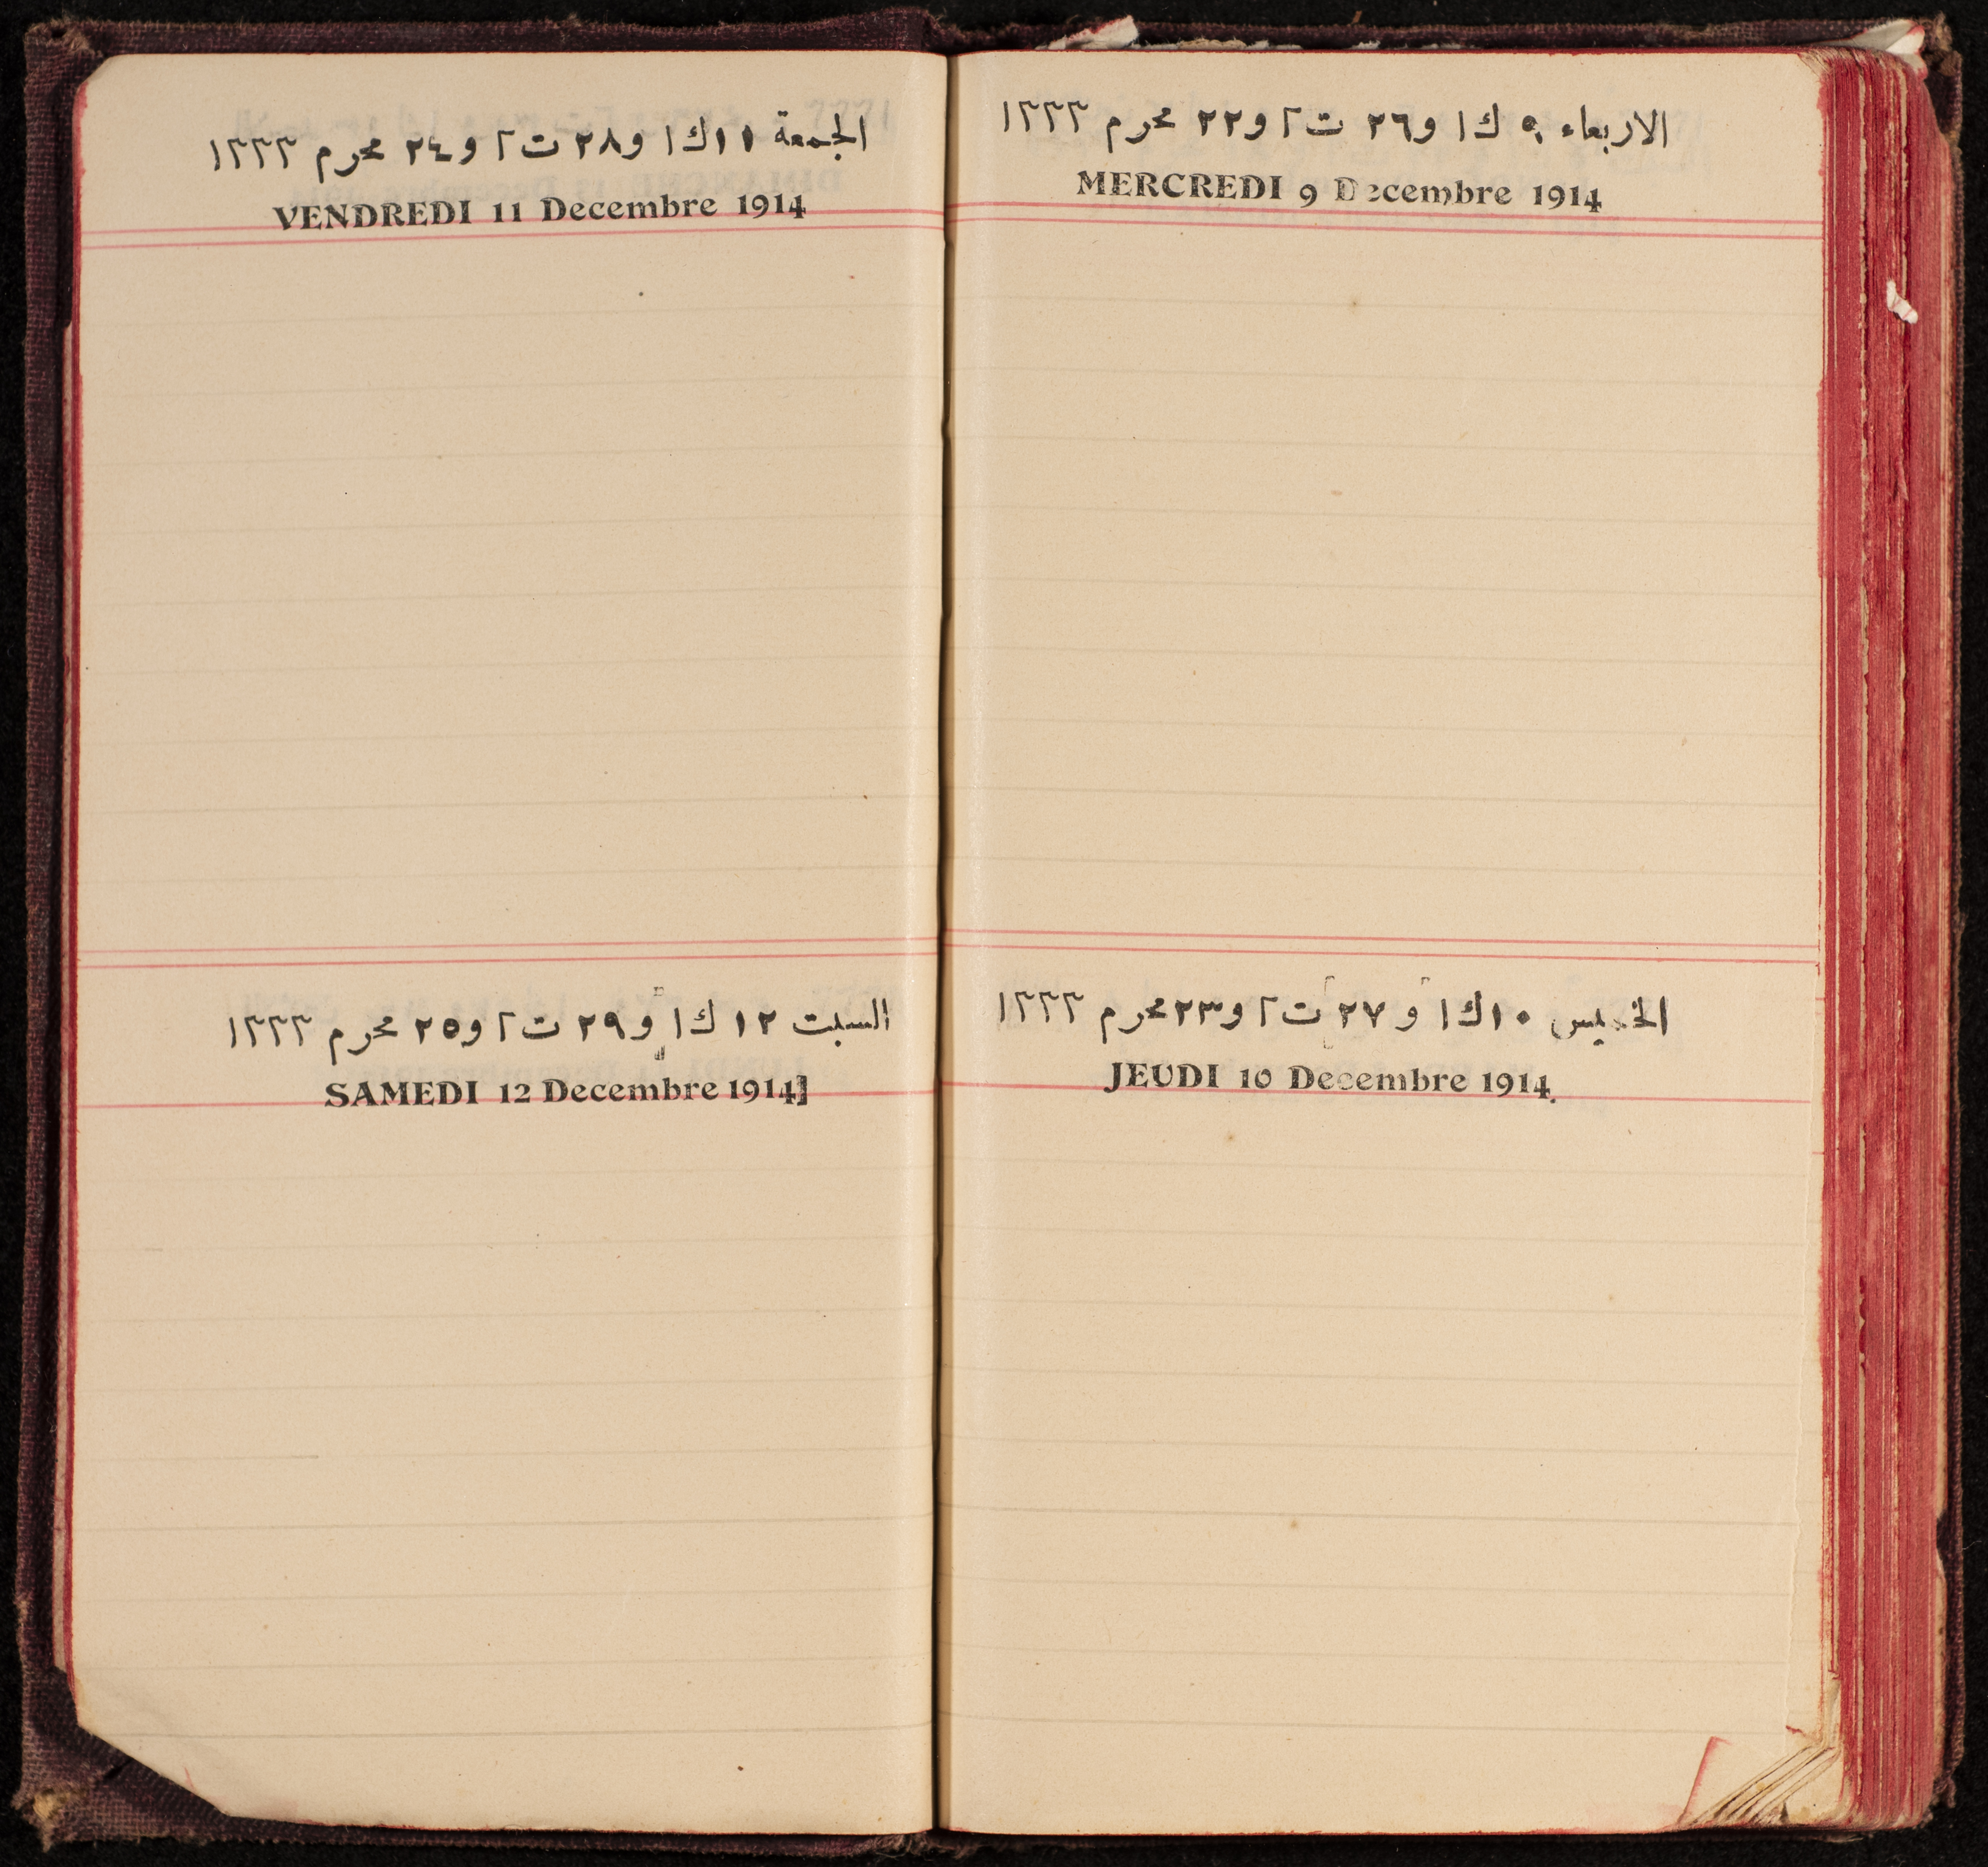 الاربعاء ٩ ك١ و٢٦ ت٢ و٢٢ محرم ١٣٣٣
MERCREDI 9 Decembre 1914
الخميس ١٠ ك١ و ٢٧ ت٢ و٢٣ محرم ١٣٣٣
JEUDI 10 Decembre 1914
الجمعة ١١ ك١ و٢٨ ت٢ و٢٤ محرم ١٣٣٣
VENDREDI 11 Decembre 1914
السبت ١٢ ك١ و٢٩ ت٢ و٢٥ محرم ١٣٣٣
SAMEDI 12 Decembre 1914]